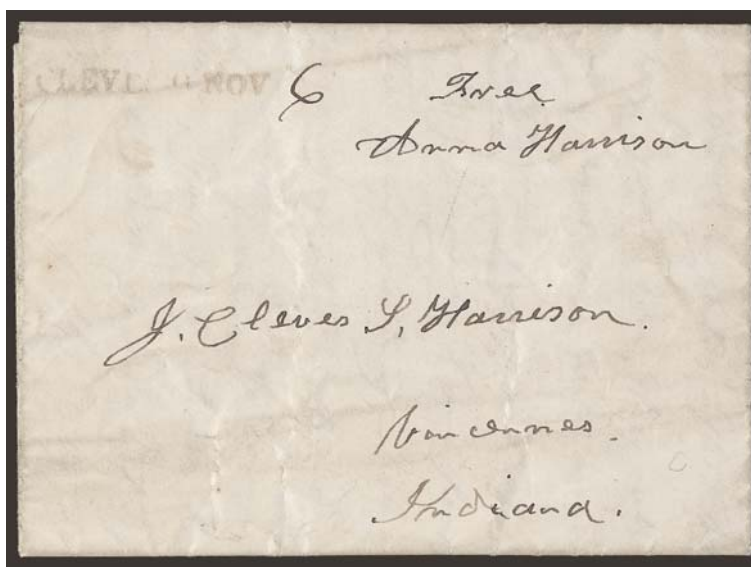 CLEV NOV
6 Free
Anna Harrison
J. Cleves S, Harrison.
Vincennes.
Indiana.